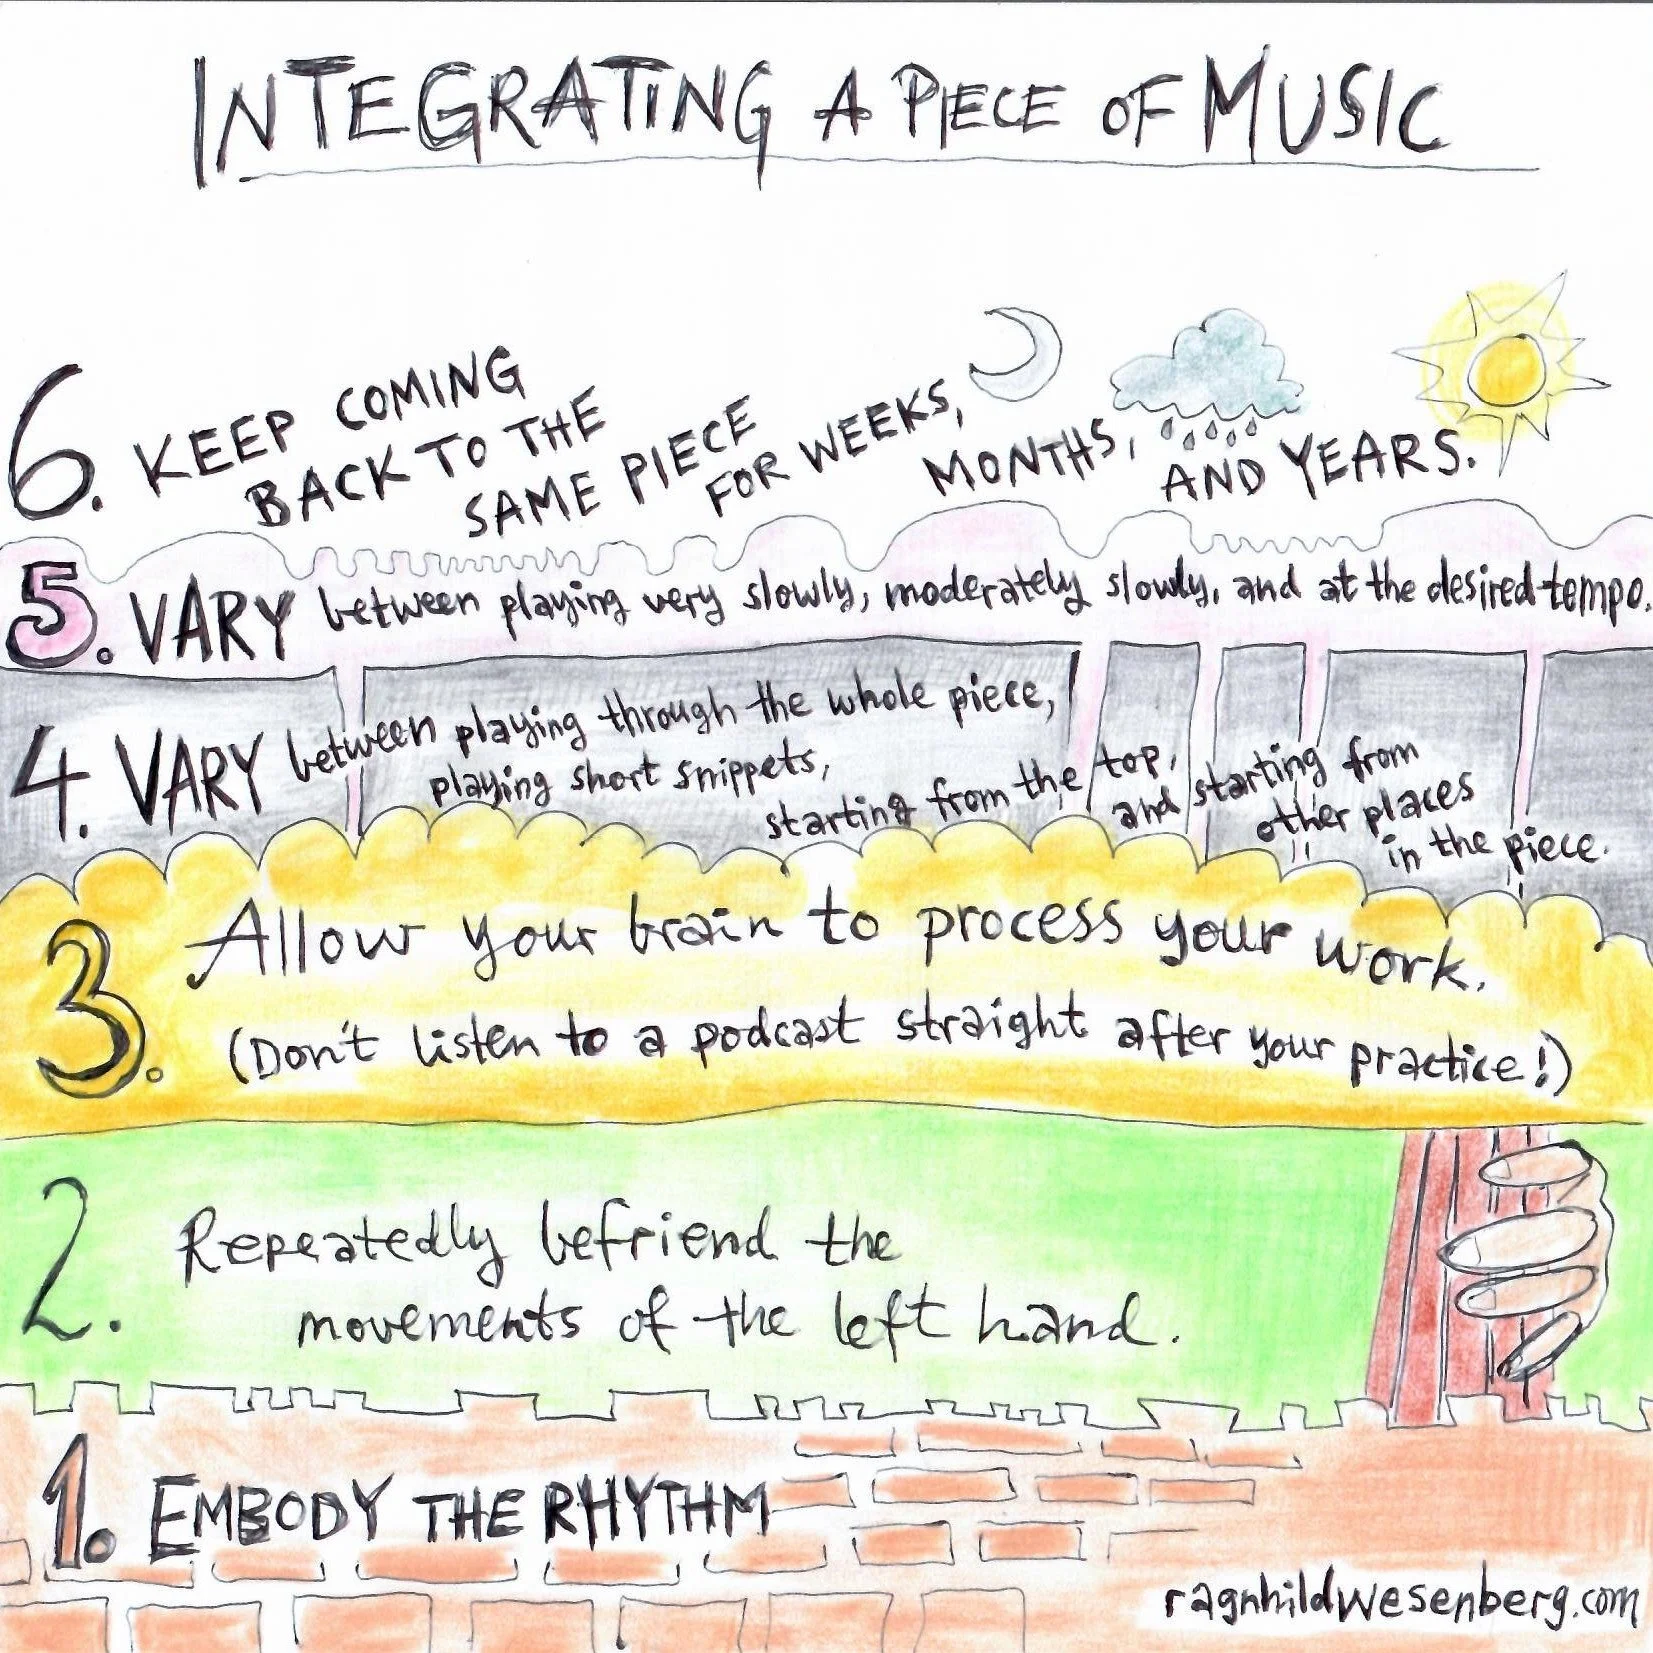 INTEGRATING A PIECE OF MUSIC
6. KEEP COMING
BACK TO THE
SAME PIECE
FOR WEEKS,
MONTHS,
AND YEARS.
5. VARY between playing very slowly, moderately slowly, and at the desired tempo.
4. VARY between playing through the whole piece,
playing short snippets,
starting from the top,
and starting from
other places
in the piece.
3. Allow your brain to process your work.
(Don't listen to a podcast straight after your practice!)
2. Repeatedly befriend the
movements of the left hand.
1. EMBODY THE RHYTHM
ragnhildwesenberg.com